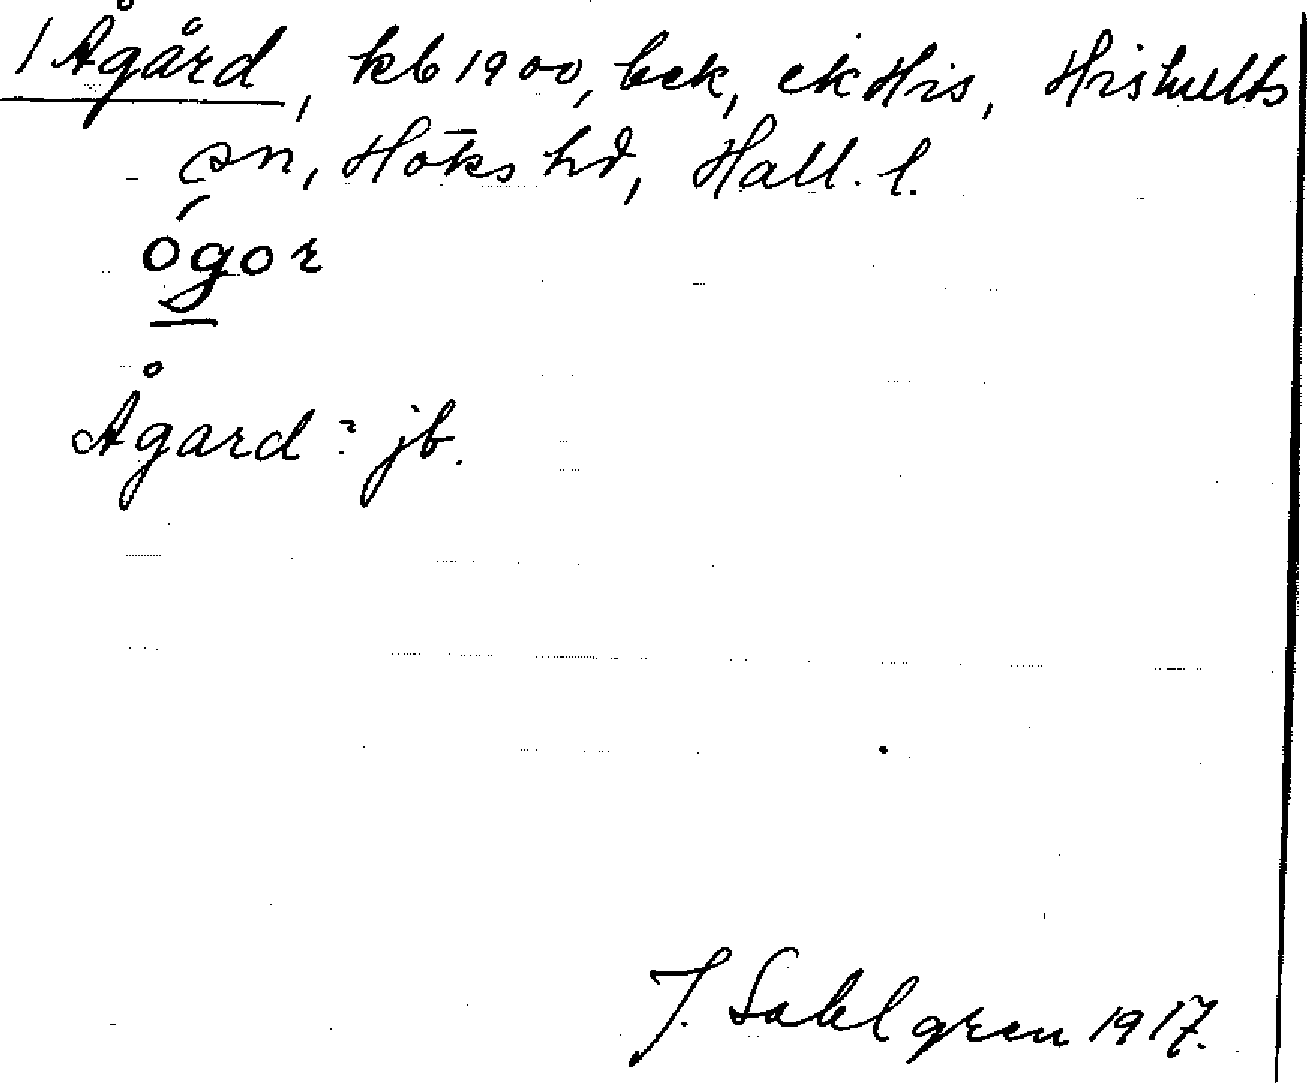 / Ågård, kb 1900, bek, ek His, Hishults
sn, Höks hd, Hall. l.
ógor
Ågard : jb.
J. Sahlgren 1917.